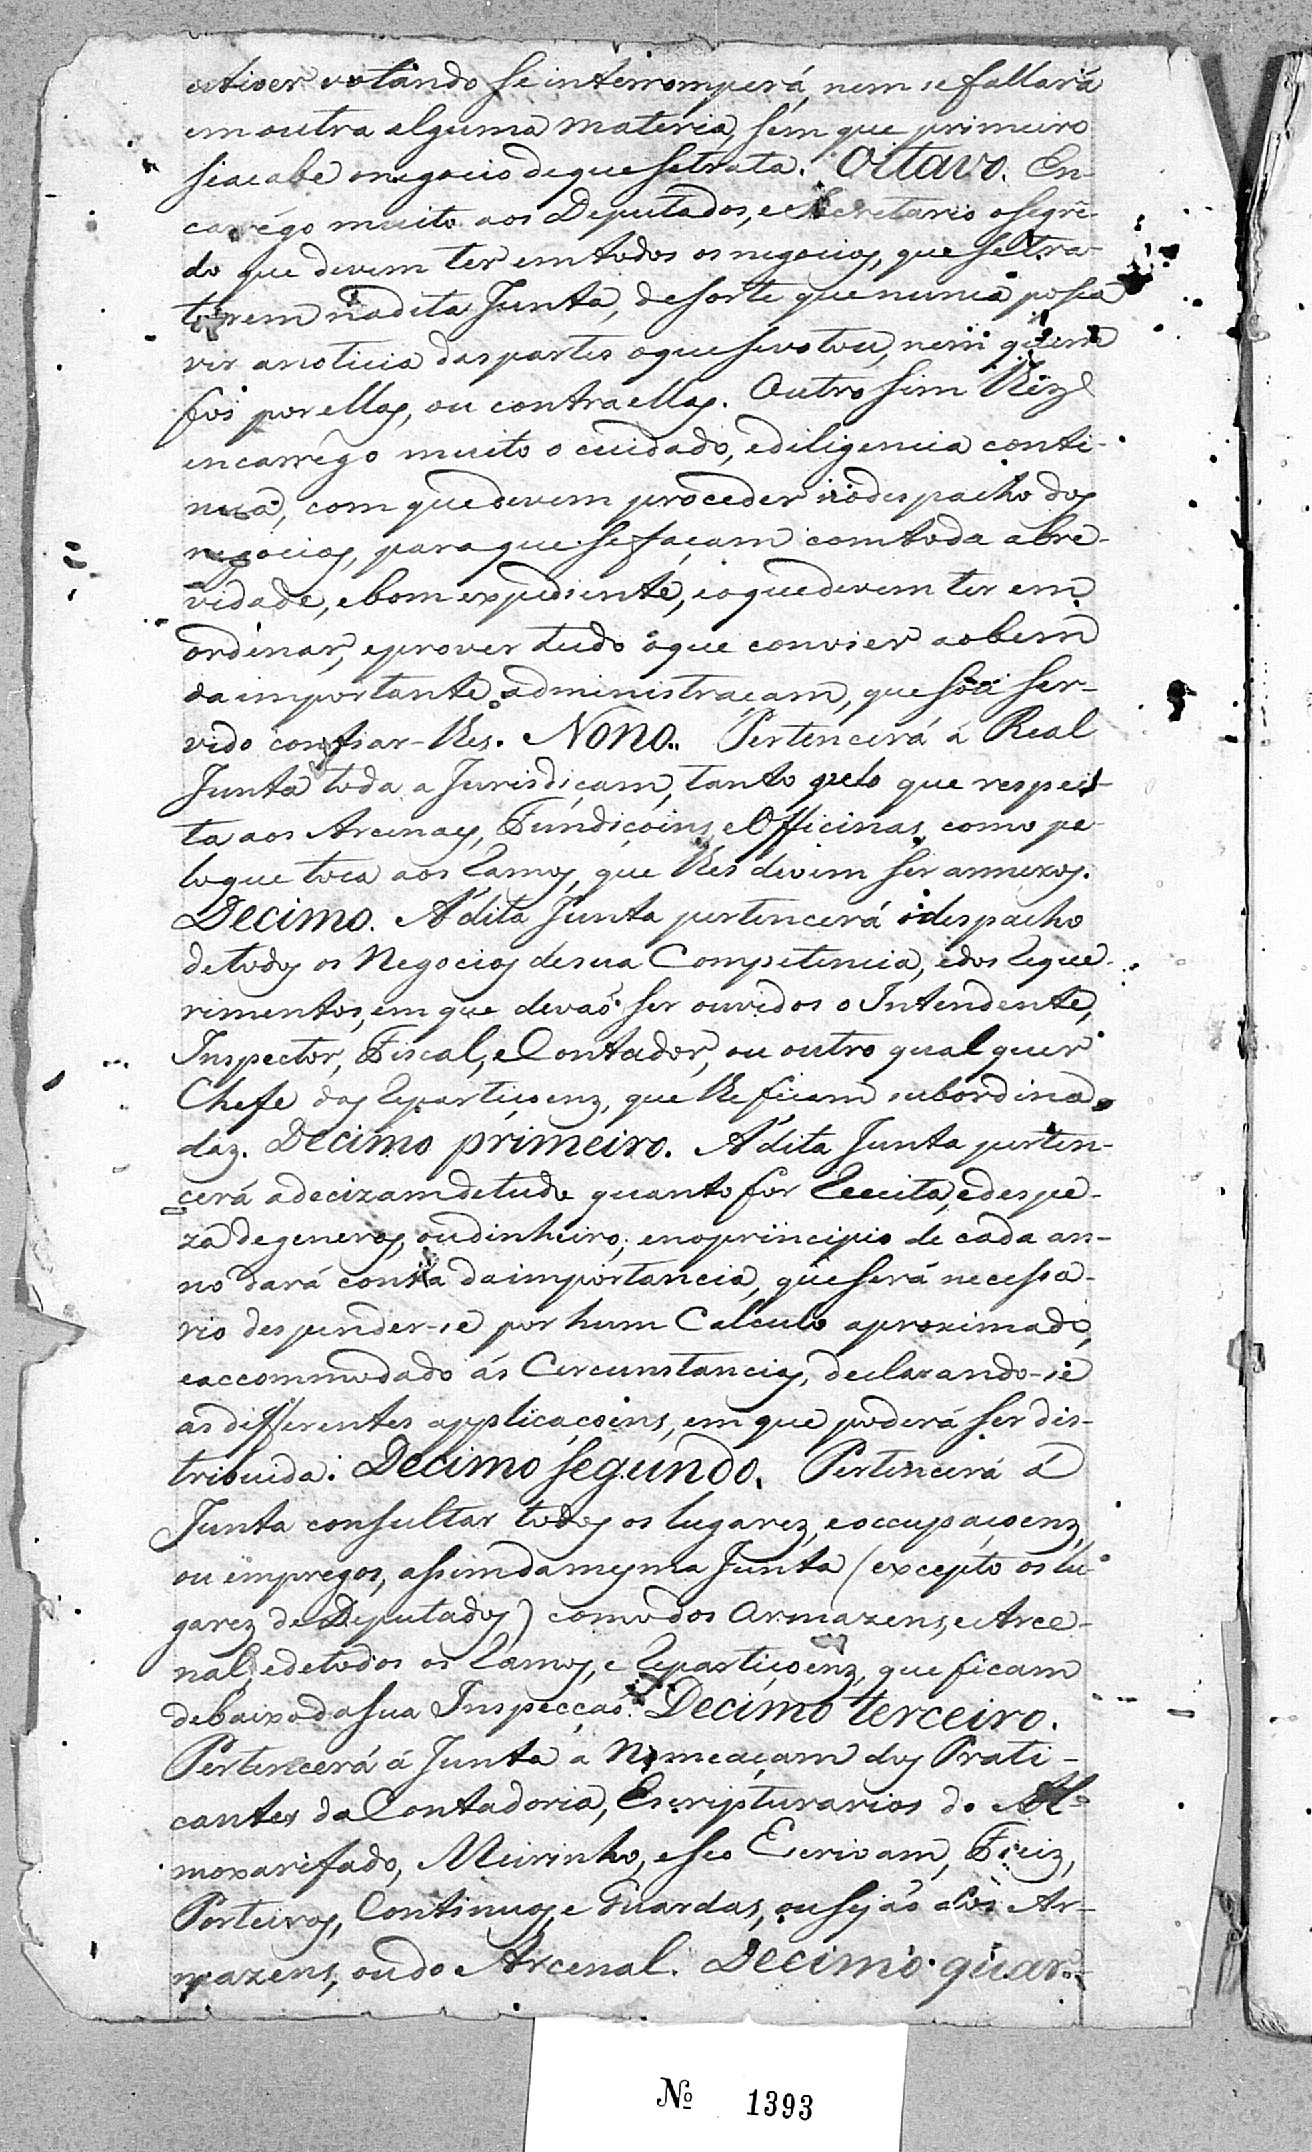 estiver votando se interromperá, nem se fallará
em outra alguma materia, sem que primeiro
se acabe o negocio de que se trata. Oitavo. En-
carrégo muito aos Deputados, e Secretario o segrê-
do que devem ter em todos os negocios, que se tra-
tarem na dita Junta, de sorte que nunca possa
vir a noticia das partes o que se votou, nem quem
foi por ellas, ou contra ellas. Outro sim lhez
encarrêgo muito o cuidado, e diligencia conti-
nua, com que devem proceder no despacho dos
negocios, para que se façam com toda a bre-
vidade, e bom expediente, e o que devem ter em
ordenar, e prover tudo o que convier ao bem
da importante administraçam, que sou ser-
vido confiar-lhes. Nono. Pertencerá á Real
Junta toda a Jurisdiçam, tanto pelo que respei-
ta aos Arcenaes, Fundiçoins, e Officinas, como pe-
lo que toca aos Ramos, que lhes devem ser annexos.
Decimo. A' dita Junta pertencerá o despacho
de todos os Negocios de sua Competencia, e dos Reque-
rimentos, em que devaõ ser ouvidos o Intendente,
Inspector, Fiscal, e Contador, ou outro qual quer
Chefe das Repartiçoenz, que lhe ficam subordina-
daz. Decimo primeiro. A' dita Junta perten-
cerá a decizam de tudo quanto for Receita, e despe-
za de generos, ou dinheiro; e no principio de cada an-
no dará conta da importancia, que será necessa-
rio despender-se por hum Calculo aproximado,
e accommodado ás Circunstancias, declarando-se
as differentes applicaçoins, em que poderá ser dis-
tribuida. Decimo segundo. Pertencerá á
Junta consultar todos os lugarez, e occupaçoenz,
ou empregos, assim da mesma Junta (excepto os lu-
garez de Deputados) como dos Armazens, e Arce-
nal, e de todos os Ramos, e Repartiçoenz, que ficam
debaixo da sua Inspecçaõ. Decimo terceiro.
Pertencerá á Junta a Nomeaçam dos Prati-
cantes da Contadoria, Escripturarios do Al-
moxarifado, Meirinho, e seo Escrivam, Fieiz,
Porteiros, Continuos, e Guardas, ou sejaõ dos Ar-
mazens, ou do Arcenal. Decimo quar-
Nº 1393